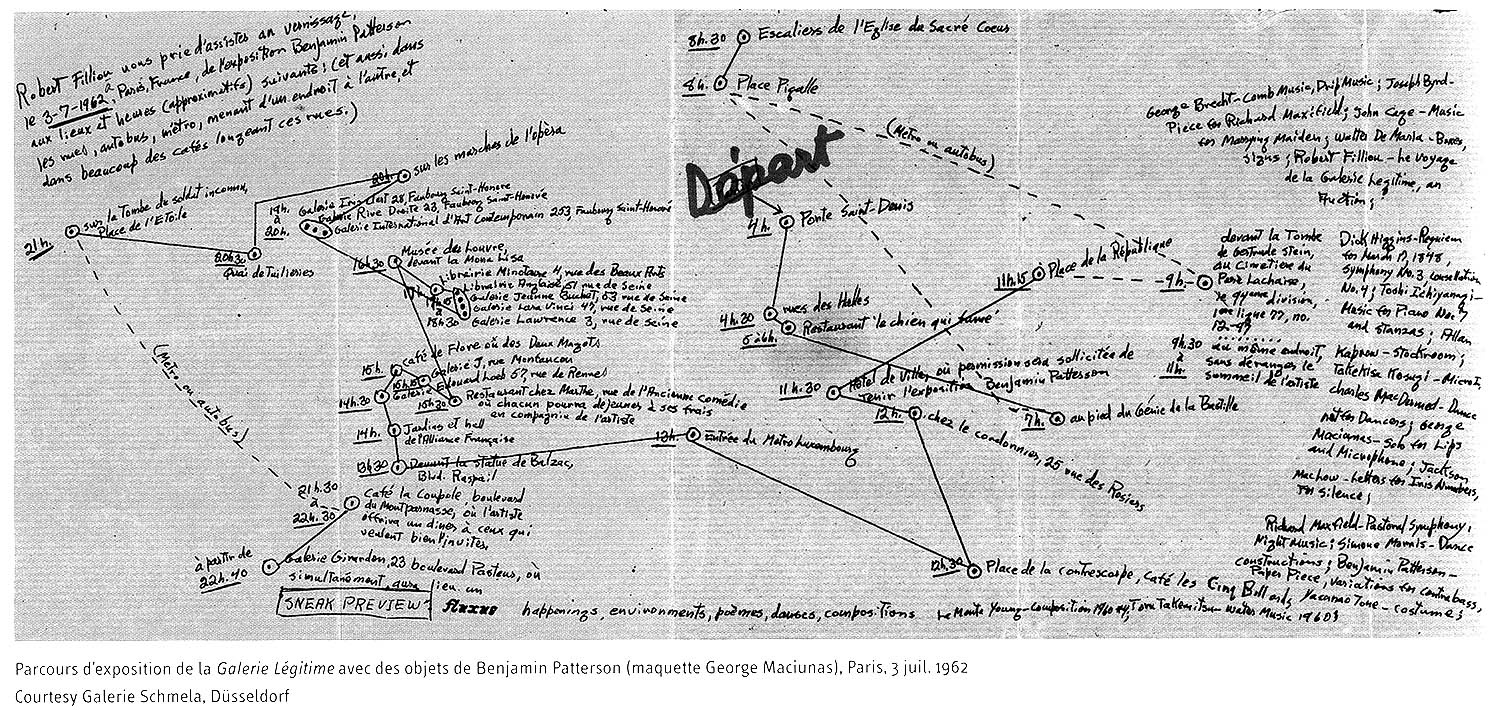 Robert Filliou vous prie d'assister au vernissage,
le 3-7-1962 à Paris, France, de l'exposition Benjamin Patterson
aux lieux et heures (approximatifs) suivants: (et aussi dans
les rues, autobus, métro, menant d'un endroit à l'autre, et
dans beaucoup des cafés longeant ces rues.)
8h.30 Escaliers de l'Eglise du Sacré Coeur
8h. Place Pigalle
(Métro ou autobus)
Départ
4h. Porte Saint-Denis
4h.30 rues des Halles
5 à 6h. Restaurant "le chien qui fume"
7h. au pied du Génie de la Bastille
9h. devant la Tombe
de Gertrude Stein,
au Cimetière du
Père Lachaise,
94eme division,
1ère ligne 77, no.
12-47
9h.30
à
11h.
au même endroit,
sans déranger le
sommeil de l'artiste
11h.15 Place de la République
11h.30 Hôtel de Ville, où permission sera sollicitée de
tenir l'exposition Benjamin Patterson
12h. chez le cordonnier, 25 rue des Rosiers
12h.30 Place de la contrescarpe, Café les Cinq Billards
13h Entrée du Métro Luxembourg
13h30 Devant la statue de Balzac,
Blvd. Raspail
14h. Jardins et hall
de l'Alliance Française
14h.30 Galerie Edouard Loeb 57, rue de Rennes
15h. café de Flore ou des Deux Magots
15h15 Galerie J, rue Montfaucon
15h30 Restaurant chez Marthe, rue de l'Ancienne Comédie
où chacun pourra déjeuner à ses frais
en compagnie de l'artiste
16h30 Musée du Louvre,
devant la Mona Lisa
17h. Librairie Minotaure 4, rue des Beaux Arts
17h15
à
18h30
Librairie Anglaise 51 rue de Seine
Galerie Jeanne Buchet, 53 rue de Seine
Galerie Lara Vinci 47, rue de Seine
Galerie Lawrence 3, rue de Seine
19h.
à
20h.
Galerie Iris Clert 28, Faubourg Saint-Honoré
Galerie Rive Droite 23, Faubourg Saint-Honoré
Galerie International d'Art Contemporain 253, Faubourg Saint-Honoré
20h. sur les marches de l'opéra
20h30 Quai de Tuilleries
21h. sur la Tombe de soldat inconnu,
Place de l'Etoile
(Métro ou autobus)
21h.30
à
22h.30
Café la Coupole, boulevard
du Montparnasse, où l'artiste
offrira un diner à ceux qui
veulent bien l'inviter.
à partir de
22h.40
Galerie Girardon, 23 boulevard Pasteur, où
simultanément aura lieu un
SNEAK PREVIEW: fluxus happenings, environments, poèmes, danses, compositions
George Brecht-Comb Music, Drip Music; Joseph Byrd-
Piece for Richard Maxfield; John Cage-Music
for Marrying Maiden; Walter De Maria-Boxes,
signs; Robert Filliou-Le Voyage
de la Galerie Légitime, an
Auction;
Dick Higgins-Requiem
for March 17, 1848,
Symphony No. 3, Constellation
No. 4; Toshi Ichiyanagi-
Music for Piano No. 7
and stanzas; Allan
Kaprow-Stockroom;
Takehisa Kosugi-Micro I,
Charles MacDermed-Dance
not for Dancers; George
Maciunas-Solo for Lips
and Microphone; Jackson
MacLow-Letters for Iris Numbers,
for Silence;
Richard Maxfield-Pastoral Symphony,
Night Music; Simone Morris-Dance
constructions; Benjamin Patterson-
Paper Piece, variations for contrabass,
Yasunao Tone-costume;
La Monte Young-Composition 1960 Toru Takemitsu-Water Music 1960;
Parcours d'exposition de la Galerie Légitime avec des objets de Benjamin Patterson (maquette George Maciunas), Paris, 3 juil. 1962
Courtesy Galerie Schmela, Düsseldorf